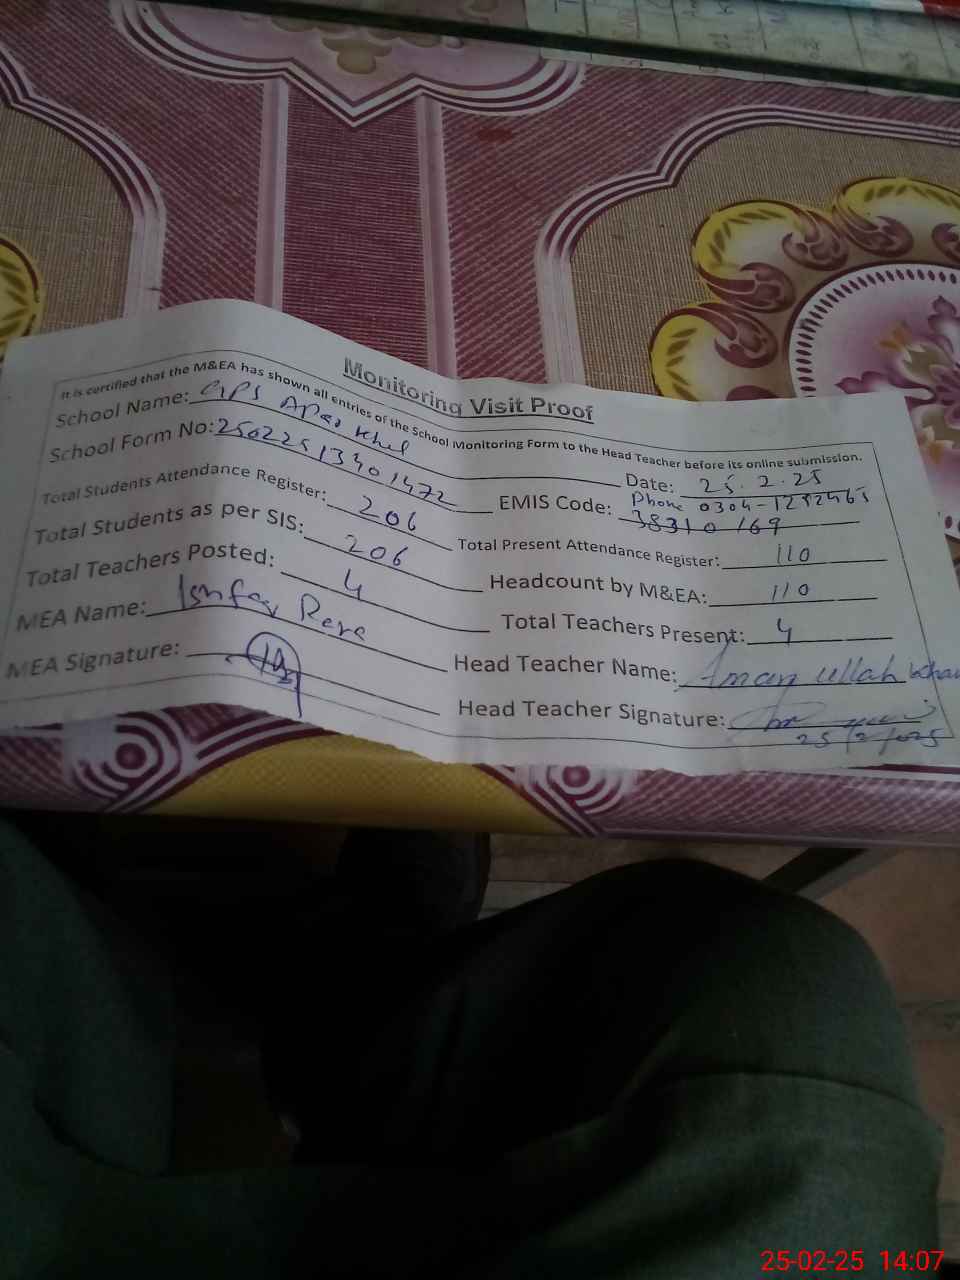 Monitoring Visit Proof
It is certified that the M&EA has shown all entries of the School Monitoring Form to the Head Teacher before its online submission.
School Name: GPS Date: 25.2.25
School Form No: 25022513401472 Phone 0304-1252465
EMIS Code: 38310169
Total Students Attendance Register: 206 Total Present Attendance Register: 110
Total Students as per SIS: 206 Headcount by M&EA: 110
Total Teachers Posted: 4 Total Teachers Present: 4
MEA Name: Head Teacher Name: Aman ullah khan
MEA Signature: Head Teacher Signature:
25/2/2025
25-02-25 14:07